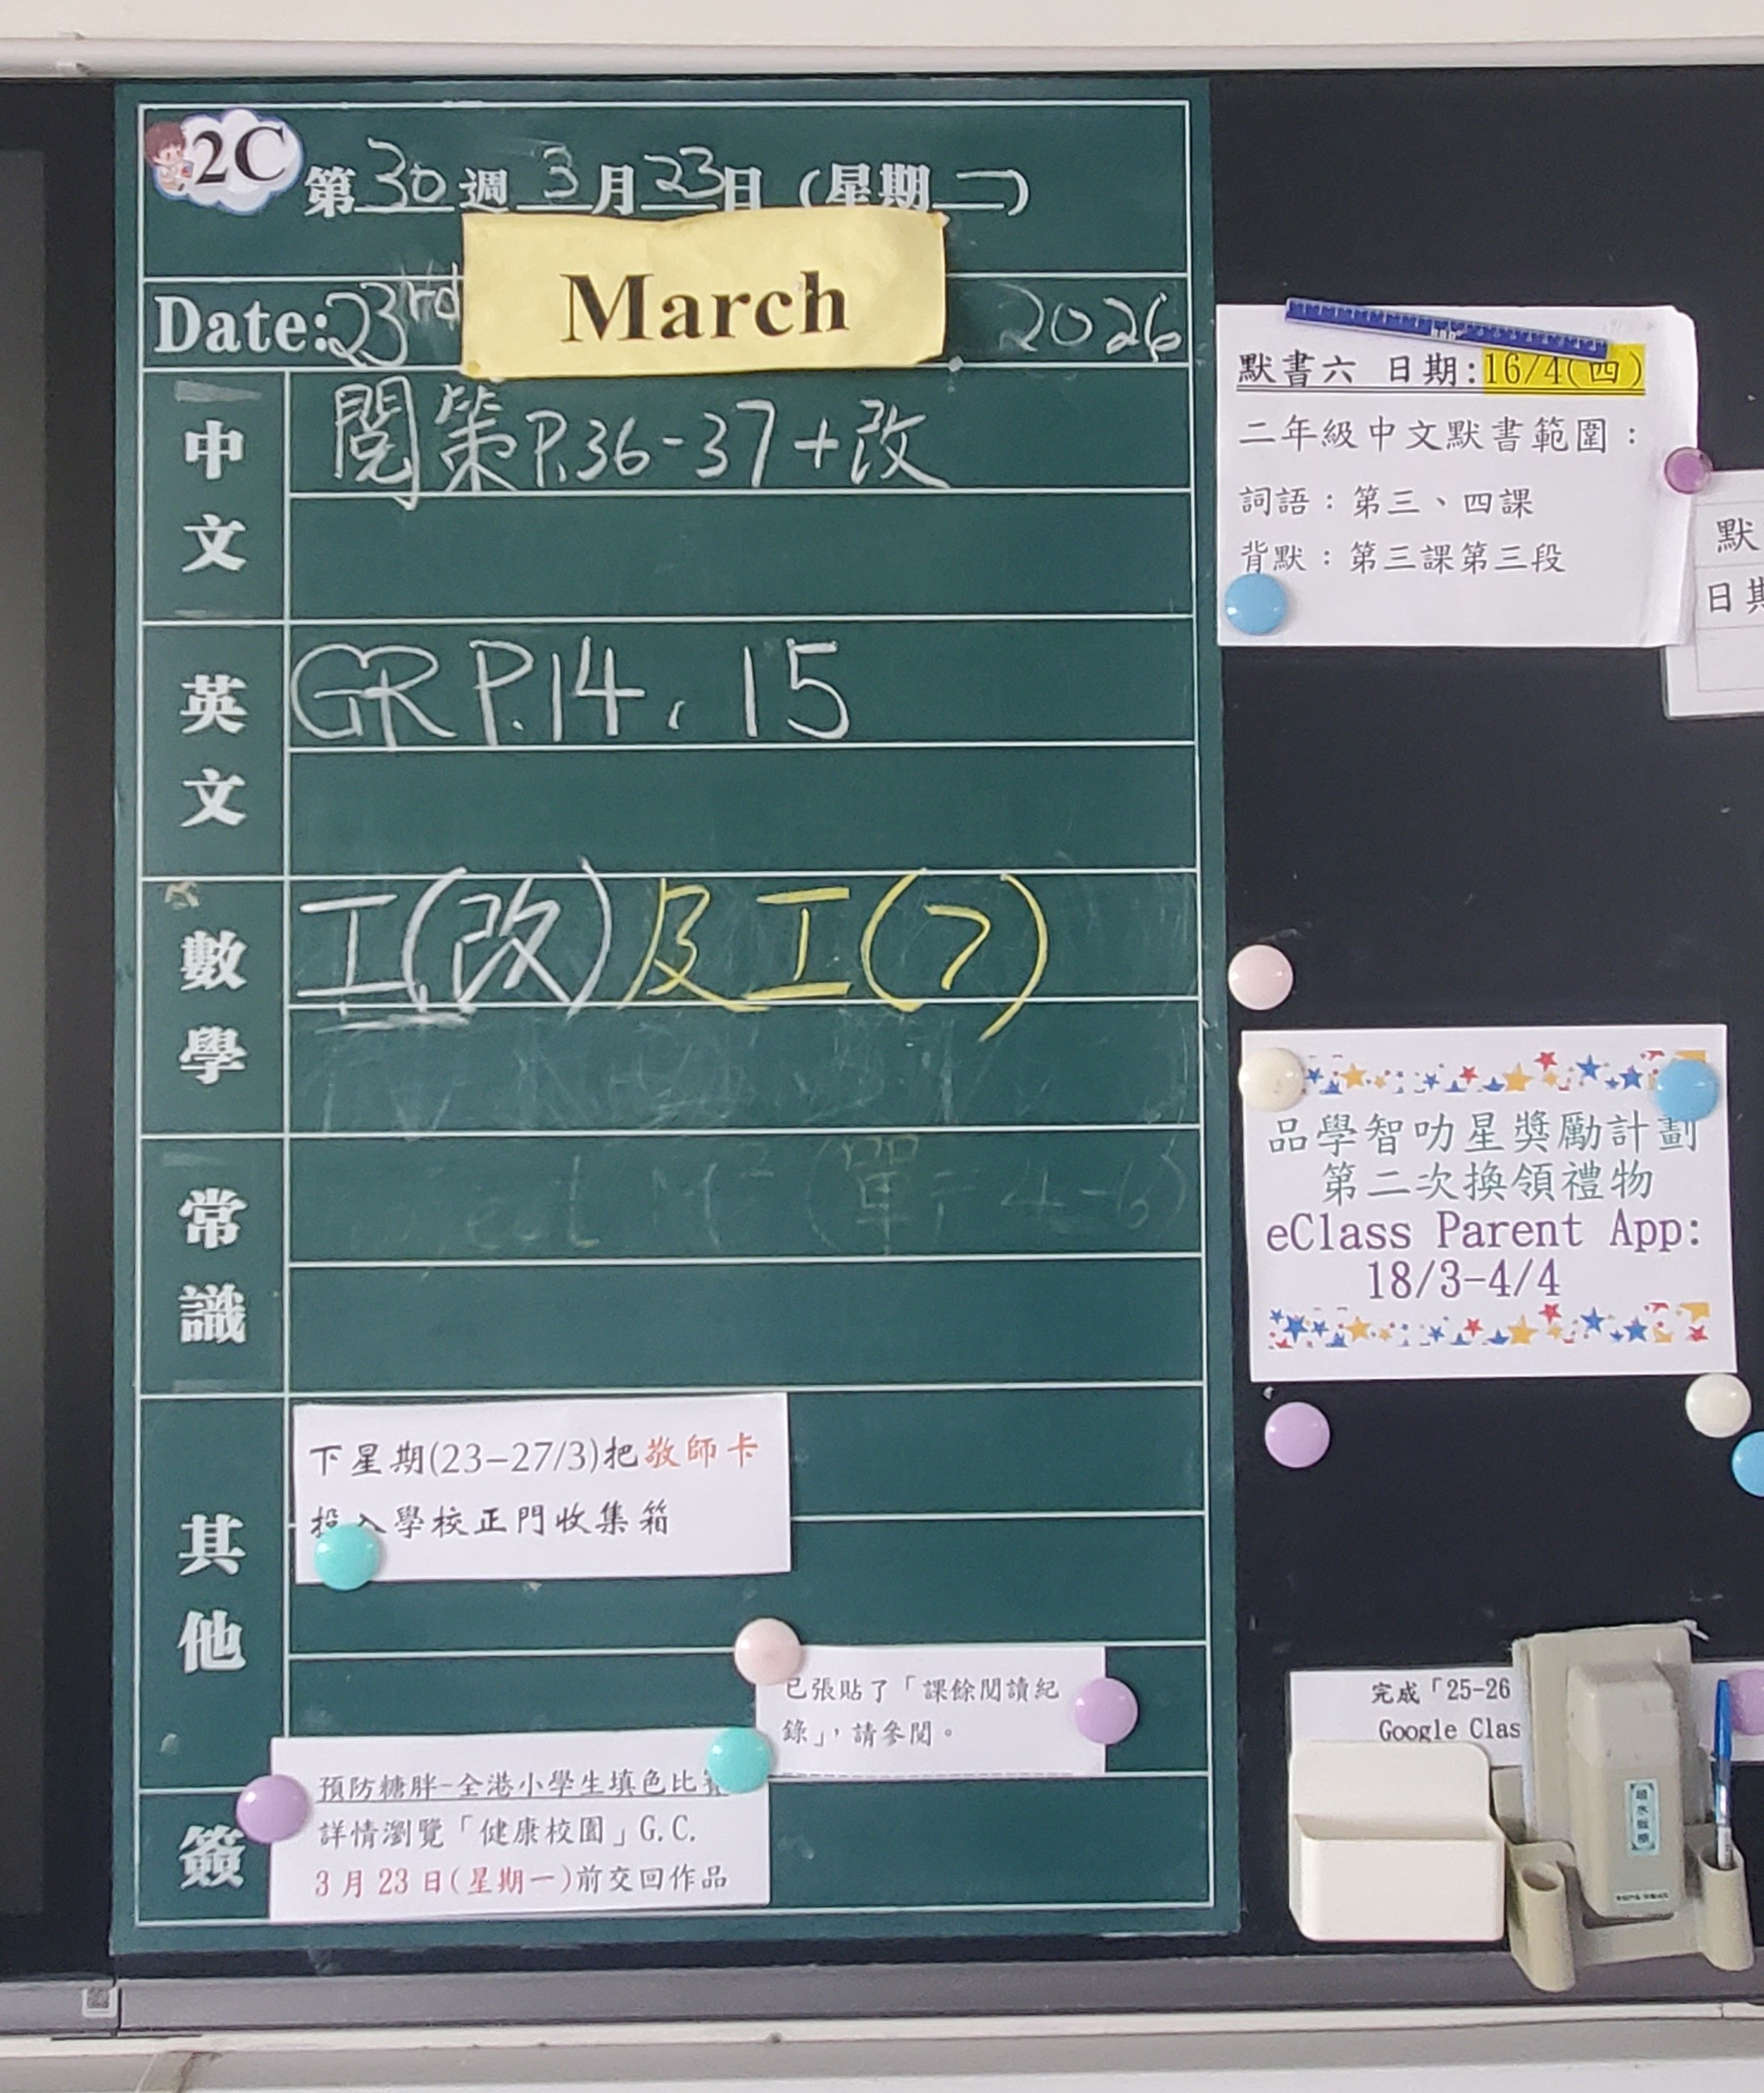 2C
第30週 3月23日 (星期二)
Date: 23rd March 2026
中文
閱策P.36-37+改
英文
GR P.14, 15
數學
工(改)及工(7)
常識
(單 4-6)
其他
下星期(23-27/3)把敬師卡
投入學校正門收集箱
已張貼了「課餘閱讀紀
錄」,請參閱。
簽
預防糖胖-全港小學生填色比賽
詳情瀏覽「健康校園」G.C.
3月23日(星期一)前交回作品
默書六 日期:16/4(四)
二年級中文默書範圍:
詞語:第三、四課
背默:第三課第三段
默
日期
品學智叻星獎勵計劃
第二次換領禮物
eClass Parent App:
18/3-4/4
完成「25-26
Google Clas